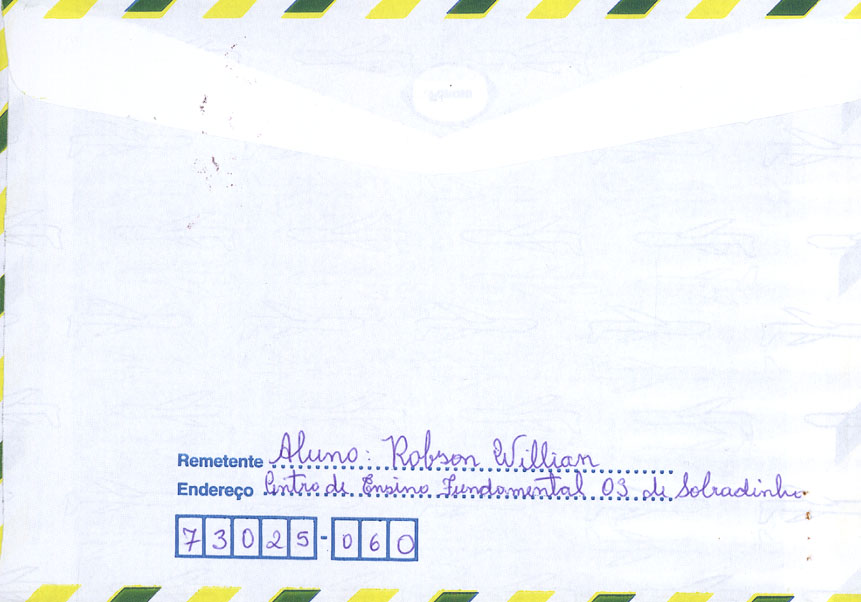 Remetente Aluno: Robson Willian
Endereço Centro de Ensino Fundamental 03 de Sobradinho
73025-060